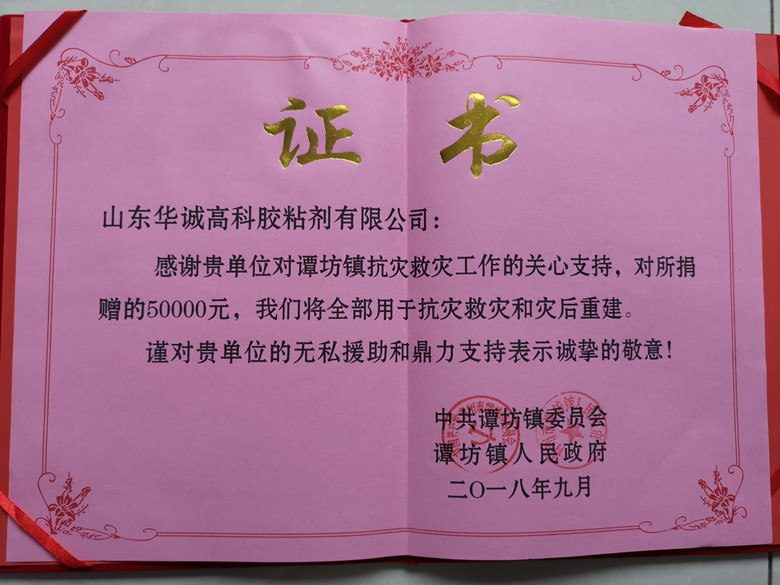 证书
山东华诚高科胶粘剂有限公司：
感谢贵单位对谭坊镇抗灾救灾工作的关心支持，对所捐
赠的50000元，我们将全部用于抗灾救灾和灾后重建。
谨对贵单位的无私援助和鼎力支持表示诚挚的敬意！
中共谭坊镇委员会
谭坊镇人民政府
二〇一八年九月